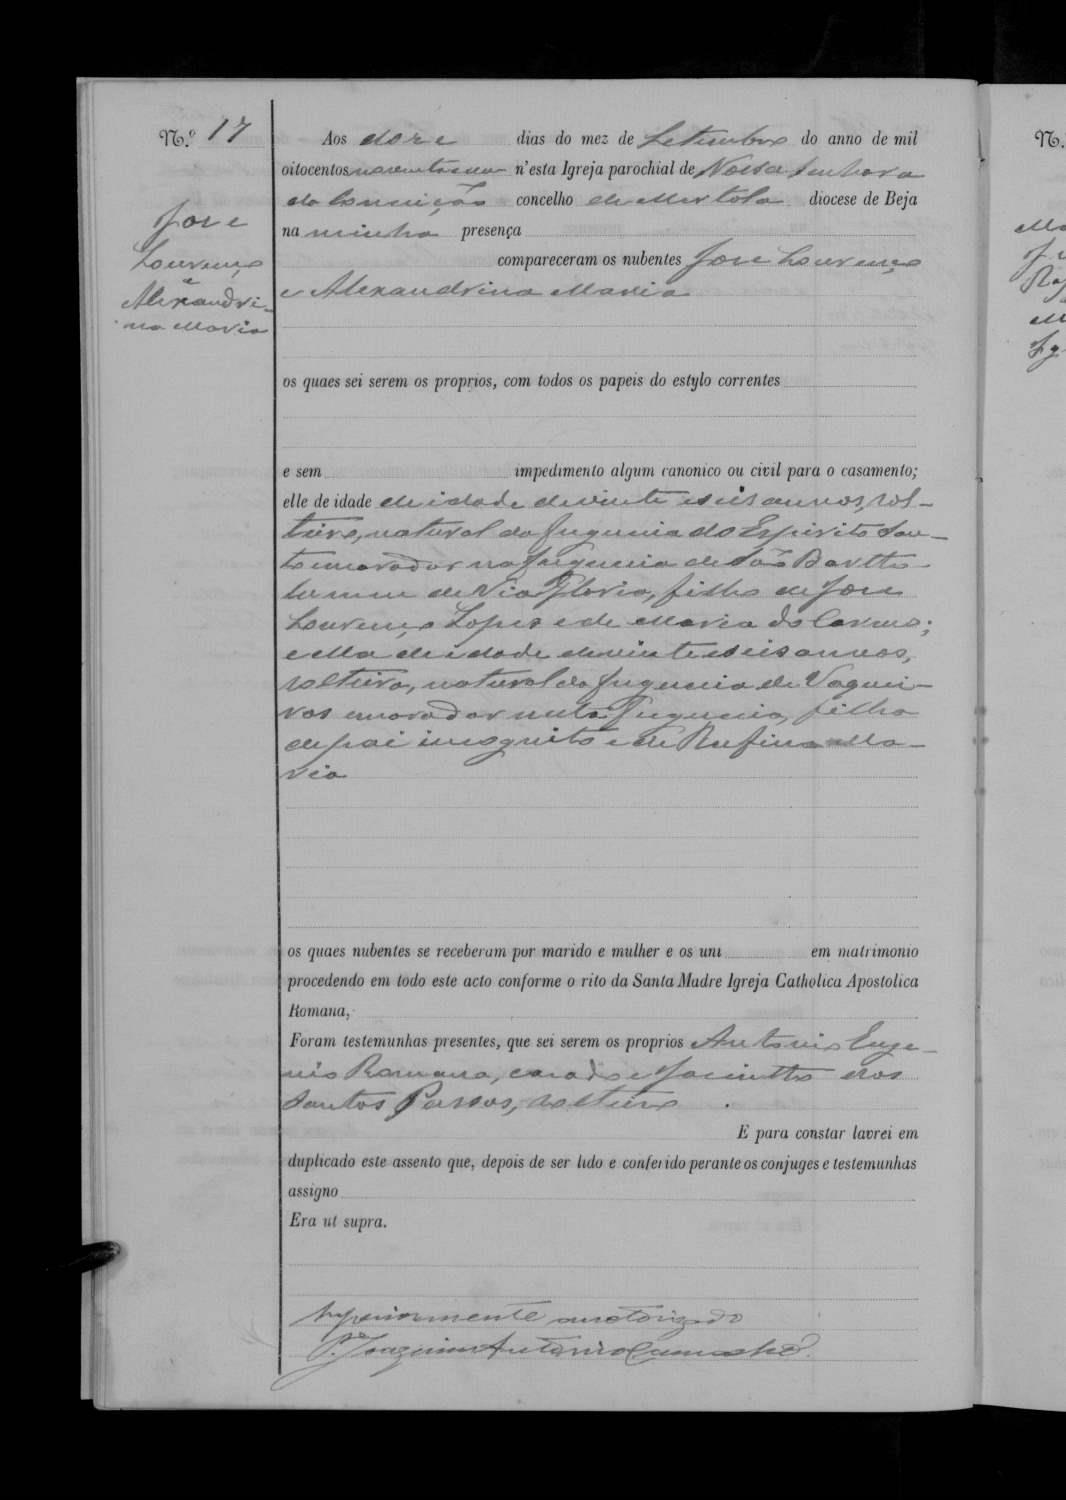 N.º 17
Jose
Lourenço
e
Alexandri-
na Maria
Aos doze dias do mez de Setembro do anno de mil
oitocentos n'esta Igreja parochial de Nossa Senhora
da Conceição concelho de Mertola diocese de Beja
na minha presença
compareceram os nubentes Jose Lourenço
e Alexandrina Maria
os quaes sei serem os proprios, com todos os papeis do estylo correntes
e sem impedimento algum canonico ou civil para o casamento;
elle de idade de idade de vinte e seis annos, sol-
teiro, natural da freguesia do Espirito San-
to morador na freguesia de São Bartho-
lumeu de Via Gloria, filho de Jose
Lourenço Lopes e de Maria do Carmo;
e ella de idade de vinte e seis annos,
solteira, natural da freguesia de Vaquei-
ros morador nesta freguesia, filha
de pai incognito e de Rufina Ma-
ria
os quaes nubentes se receberam por marido e mulher e os uni em matrimonio
procedendo em todo este acto conforme o rito da Santa Madre Igreja Catholica Apostolica
Romana,
Foram testemunhas presentes, que sei serem os proprios Antonio Euge-
nio Romana, casado e Jacintho dos
Santos Passos, solteiro
E para constar lavrei em
duplicado este assento que, depois de ser lido e conferido perante os conjuges e testemunhas
assigno
Era ut supra.
Superiormente auctorizado
P. Joaquim Antonio Camacho
N.